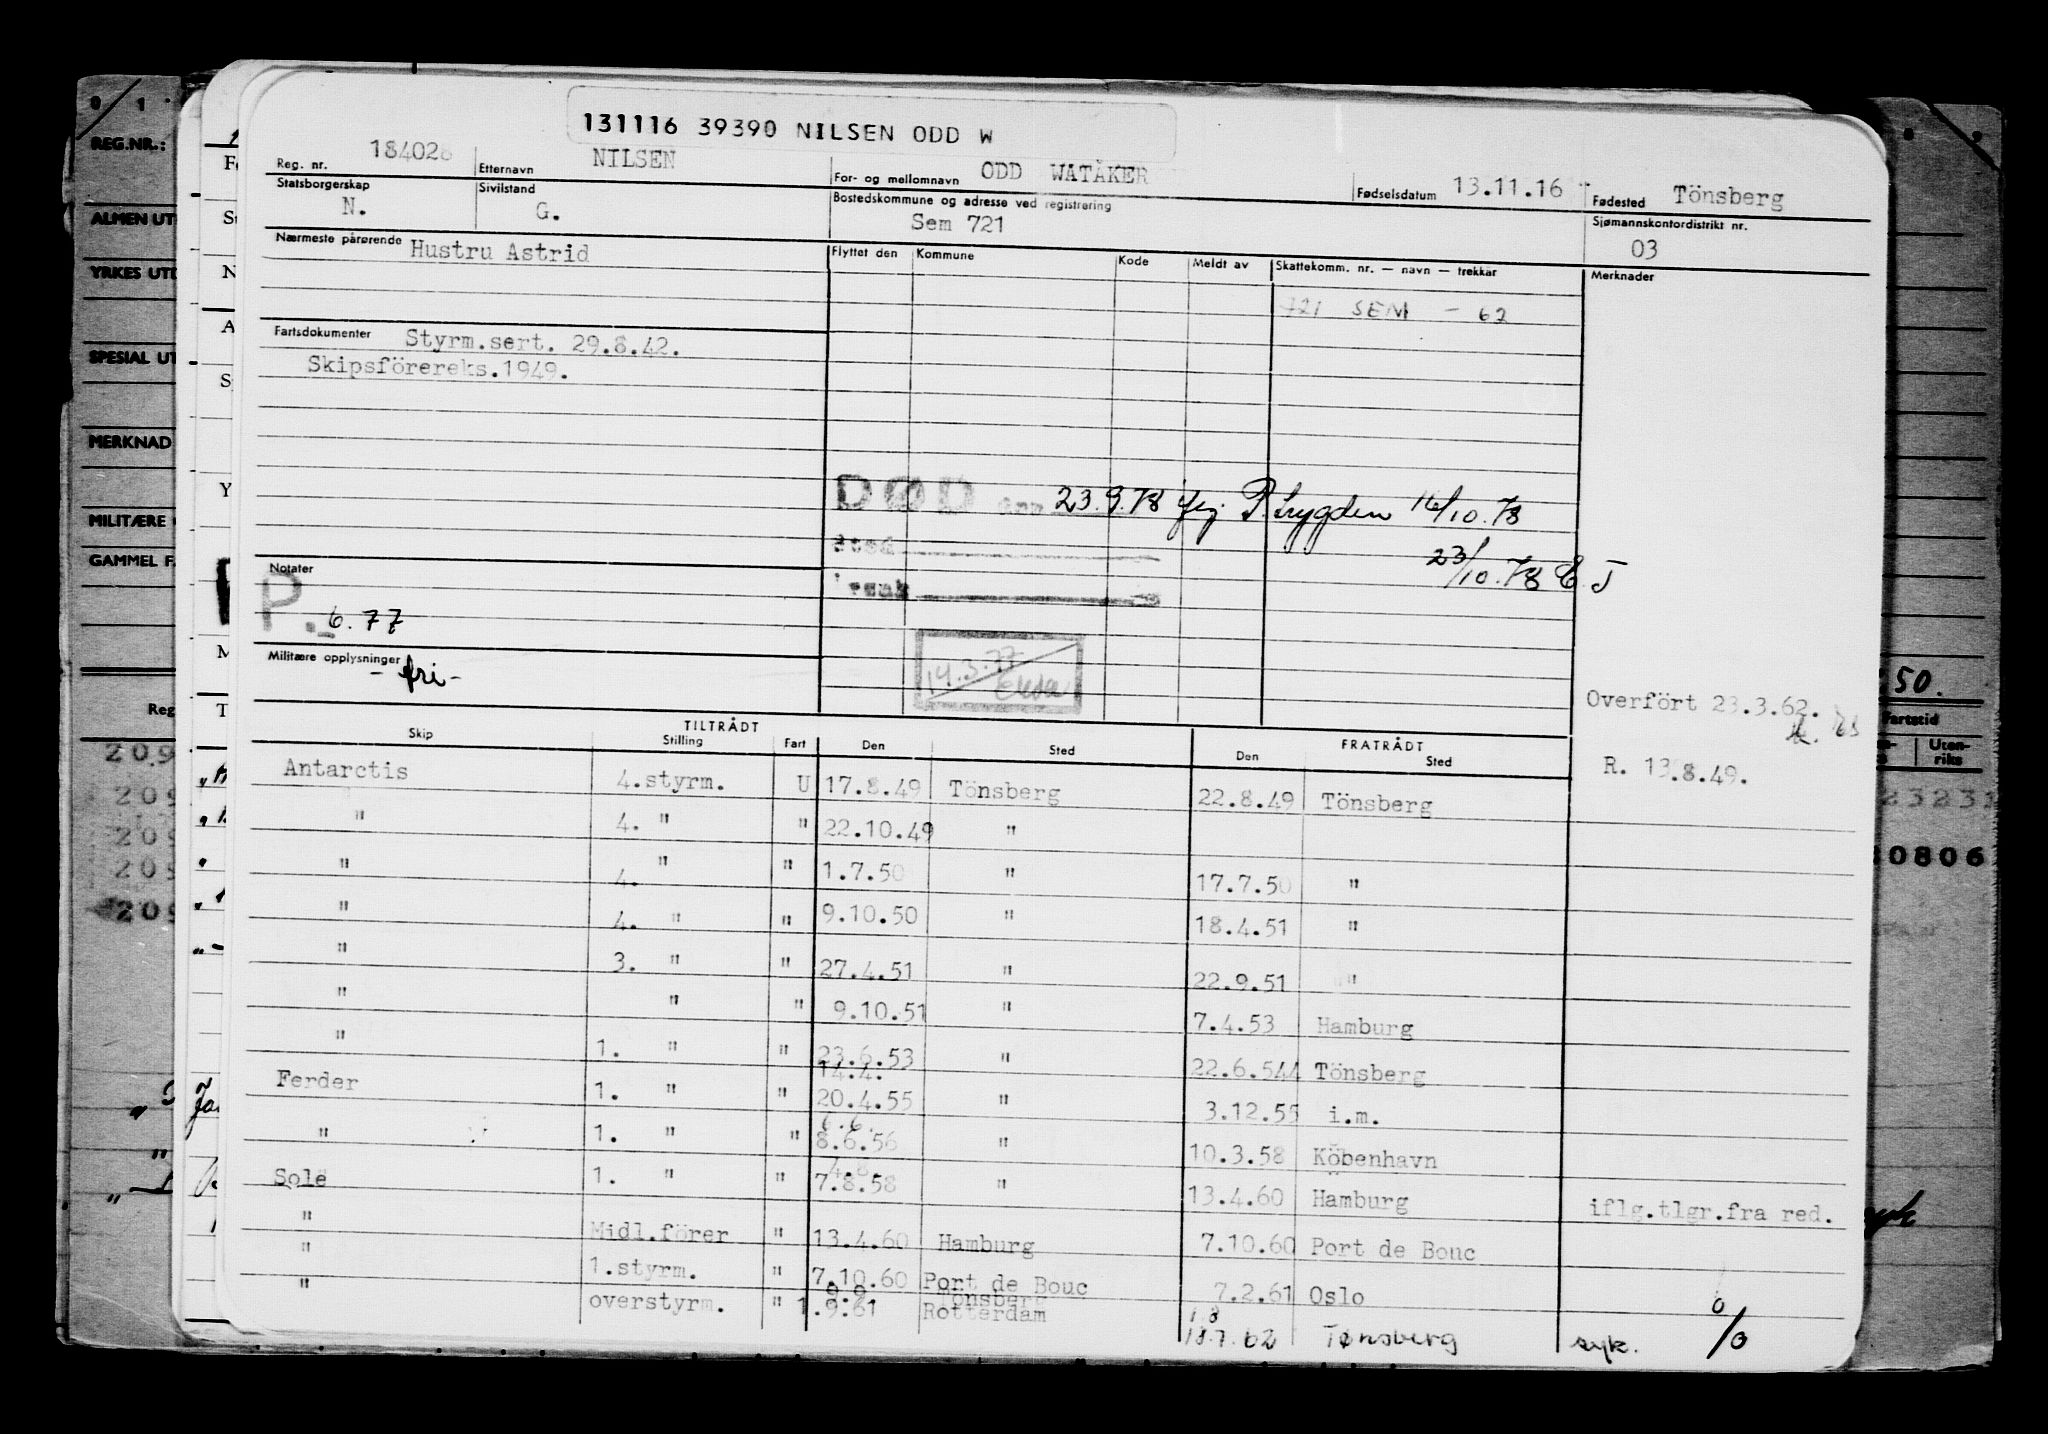 131116 39390 NILSEN ODD W
Reg. nr. 184026 Etternavn NILSEN For- og mellomnavn ODD WATÅKER Fødselsdatum 13.11.16 Fødested Tönsberg
Statsborgerskap N. Sivilstand G. Bostedskommune og adresse ved registrering Sem 721 Sjømannskontordistrikt nr. 03
Nærmeste pårørende Hustru Astrid Flyttet den Kommune Kode Meldt av Skattekomm. nr. — navn — trekkår Merknader
721 SEM - 62
Fartsdokumenter Styrm.sert. 29.8.42.
Skipsförereks.1949.
DØD den 23.9.78 P. Trygden 16/10.78
Sted
23/10.78 E.J
Notater
P. 6.77
Militære opplysninger - fri -
14.3.77
Overfört 23.3.62.
TILTRÅDT FRATRÅDT
Skip Stilling Fart Den Sted Den Sted
R. 13.8.49.
Antarctis 4.styrm. U 17.8.49 Tönsberg 22.8.49 Tönsberg
" 4. " " 22.10.49 "
" 4. " " 1.7.50 " 17.7.50 "
" 4. " " 9.10.50 " 18.4.51 "
" 3. " " 27.4.51 " 22.9.51 "
" " " 9.10.51 " 7.4.53 Hamburg
" 1. " " 23.6.53 " 22.6.544 Tönsberg
14.4.
Ferder 1. " " 20.4.55 " 3.12.55 i.m.
6.6.
" 1. " " 8.6.56 " 10.3.58 Köbenhavn
4.8.
Sole 1. " " 7.8.58 " 13.4.60 Hamburg iflg.tlgr.fra red.
" Midl.förer " 13.4.60 Hamburg 7.10.60 Port de Bouc
" 1.styrm. " 7.10.60 Port de Bouc 7.2.61 Oslo
Tönsberg
" overstyrm. " 1.9.61 Rotterdam 18.7.62 Tønsberg syk. %
REG.NR.:
ALMEN UT
YRKES UTD
SPESIAL UT
MERKNAD
MILITÆRE
GAMMEL F
Reg
209
209
209
209
209
50.
Fartstid
Uten-
riks
23231
0806